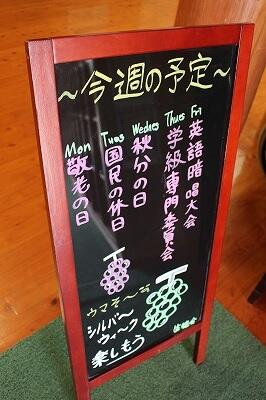 ～今週の予定～
Mon
敬老の日
Tues
国民の休日
Wednes
秋分の日
Thurs
学級専門委員会
Fri
英語暗唱大会
ウマそ～
シルバー
ウィーク
楽しもう